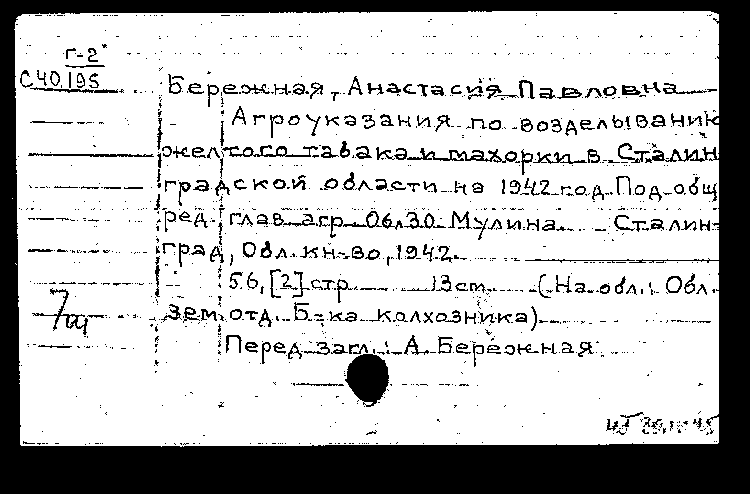 Г-2
С40.195
Бережная, Анастасия Павловна
Агроуказания по возделыванию
желтого табака и махорки в Сталин
градской области на 1942 год. Под общ
ред. глав агр ОбЗО Мулина. Сталин-
град, Обл. кн-во, 1942.
56, [2] стр 13 см (На обл.: Обл.
зем. отд. Б-ка колхозника)
Перед загл.: А. Бережная